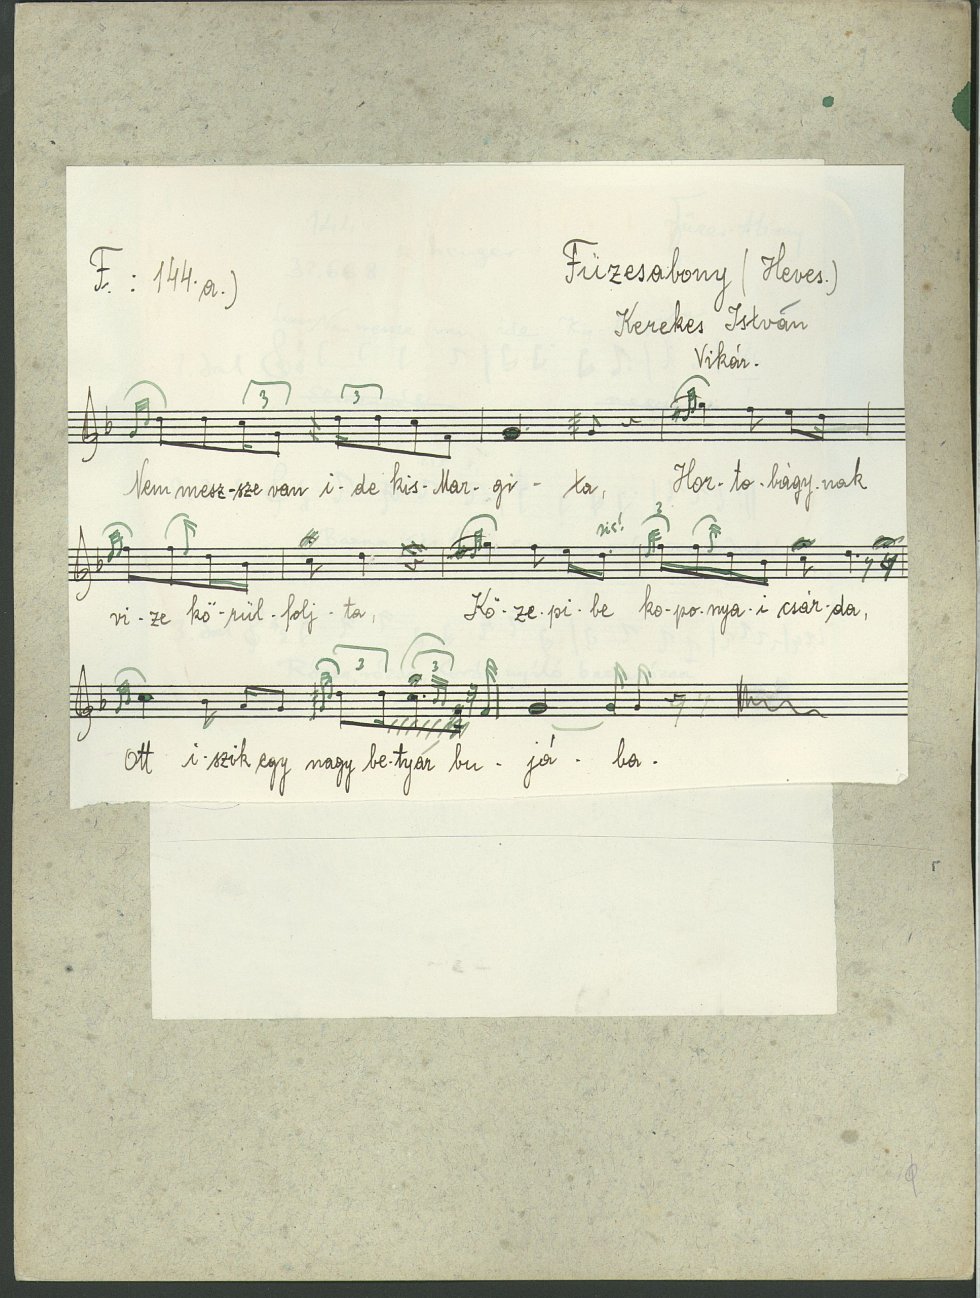 F. : 144. a.)
Füzesabony (Heves.)
Kerekes István
Vikár.
3 3
Nem mesz-sze van i-de kis-Mar-gi-ta, Hor-to-bágy-nak
vis! 3
vi-ze kö-rül-folj-ta, Kö-ze-pi-be ko-po-nya-i csár-da,
3 3
Ott i-szik egy nagy be-tyár bu-já-ba.